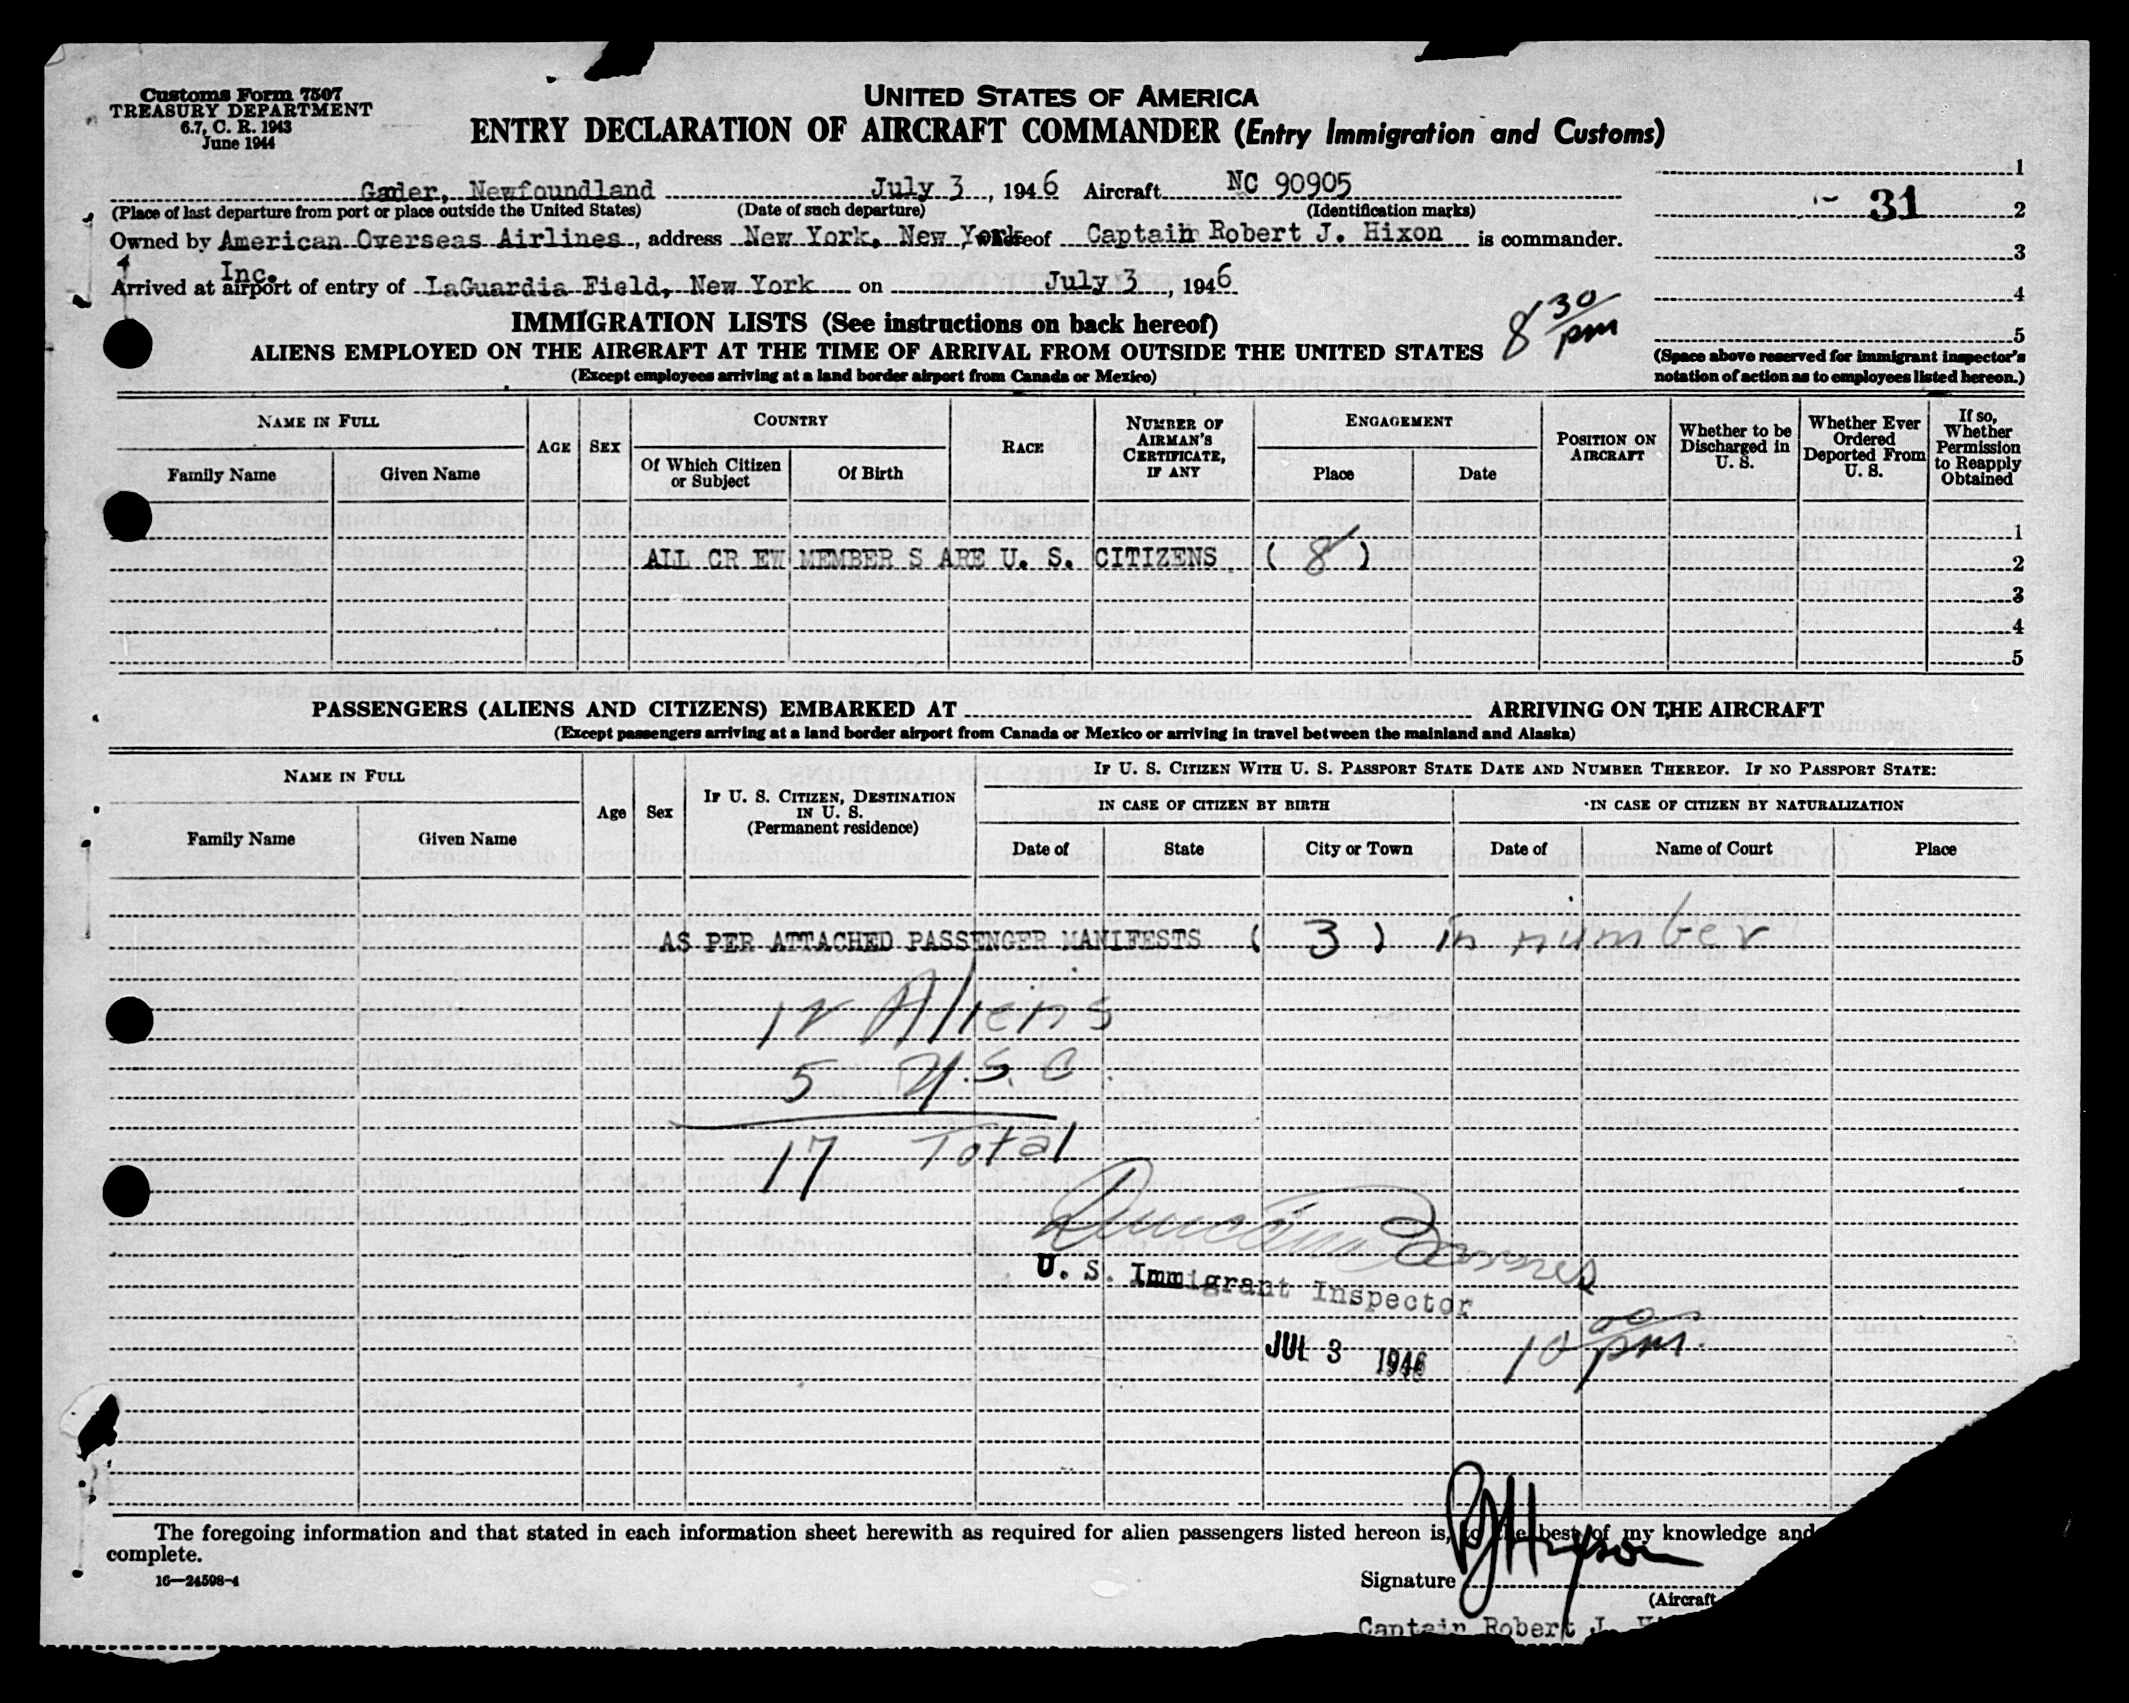 Customs Form 7507
TREASURY DEPARTMENT
6.7, C. R. 1943
June 1944
UNITED STATES OF AMERICA
ENTRY DECLARATION OF AIRCRAFT COMMANDER (Entry Immigration and Customs)
Gander, Newfoundland July 3, 1946 Aircraft NC 90905
(Place of last departure from port or place outside the United States) (Date of such departure) (Identification marks)
Owned by American Overseas Airlines, address New York, New York whereof Captain Robert J. Hixon is commander.
Inc.
Arrived at airport of entry of LaGuardia Field, New York on July 3, 1946
1
31 2
3
4
5
(Space above reserved for immigrant inspector's
notation of action as to employees listed hereon.)
8 30 pm
IMMIGRATION LISTS (See instructions on back hereof)
ALIENS EMPLOYED ON THE AIRCRAFT AT THE TIME OF ARRIVAL FROM OUTSIDE THE UNITED STATES
(Except employees arriving at a land border airport from Canada or Mexico)
NAME IN FULL
Family Name Given Name
AGE SEX
COUNTRY
Of Which Citizen or Subject Of Birth
RACE
NUMBER OF AIRMAN'S CERTIFICATE, IF ANY
ENGAGEMENT
Place Date
POSITION ON AIRCRAFT
Whether to be Discharged in U. S.
Whether Ever Ordered Deported From U. S.
If so, Whether Permission to Reapply Obtained
1
ALL CR EW MEMBER S ARE U. S. CITIZENS. ( 8 ) 2
3
4
5
PASSENGERS (ALIENS AND CITIZENS) EMBARKED AT ARRIVING ON THE AIRCRAFT
(Except passengers arriving at a land border airport from Canada or Mexico or arriving in travel between the mainland and Alaska)
NAME IN FULL
Family Name Given Name
Age Sex
IF U. S. CITIZEN, DESTINATION IN U. S.
(Permanent residence)
IF U. S. CITIZEN WITH U. S. PASSPORT STATE DATE AND NUMBER THEREOF. IF NO PASSPORT STATE:
IN CASE OF CITIZEN BY BIRTH IN CASE OF CITIZEN BY NATURALIZATION
Date of State City or Town Date of Name of Court Place
AS PER ATTACHED PASSENGER MANIFESTS ( 3 ) in number
12 Aliens
5 U.S.C.
17 Total
U. S. Immigrant Inspector
JUL 3 1946 10 00 pm.
The foregoing information and that stated in each information sheet herewith as required for alien passengers listed hereon is, to the best of my knowledge and
complete.
16—24598-4
RJHixon
Signature
(Aircraft
Captain Robert J.